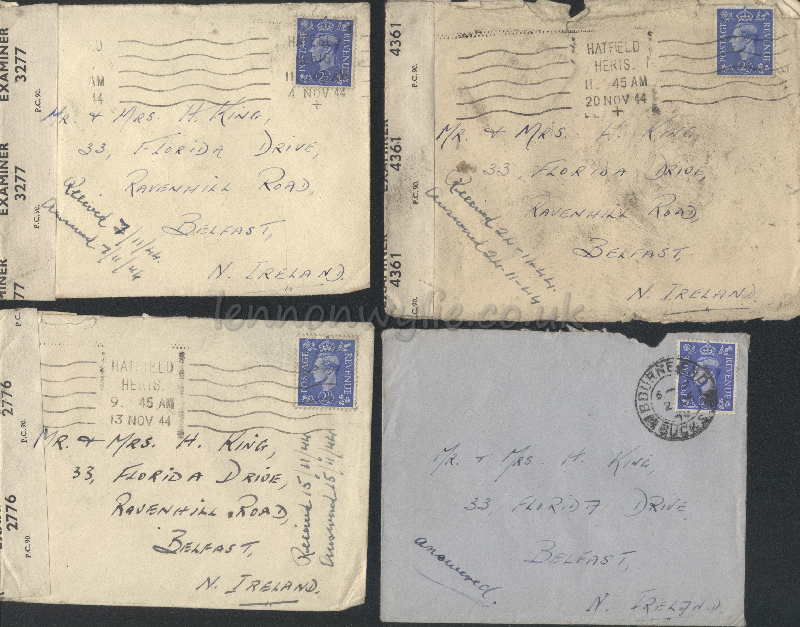 EXAMINER 3277
P.C. 90.
EXAMINER 3277
P.C. 90.
POSTAGE REVENUE
AM
44
4 NOV 44
Mr. & Mrs. H. King,
33, Florida Drive,
Ravenhill Road,
Belfast,
N. Ireland.
Received 7/11/44.
Answered 7/11/44
4361
P.C. 90.
4361
P.C. 90.
4361
POSTAGE REVENUE
HATFIELD
HERTS.
11. 45 AM
20 NOV 44
Mr. & Mrs. H. King,
33, Florida Drive,
Ravenhill Road,
Belfast,
N. Ireland.
Received 24-11-44.
Answered 24-11-44
lennonwylie.co.uk
2776
P.C. 90.
2776
P.C. 90.
POSTAGE REVENUE
HATFIELD
HERTS.
9. 45 AM
13 NOV 44
Mr. & Mrs. H. King,
33, Florida Drive,
Ravenhill Road,
Belfast,
N. Ireland.
Received 15/11/44
Answered 15/11/44
POSTAGE REVENUE
BOURNE END
BUCKS
Mr. & Mrs. H. King,
33, Florida Drive
Belfast,
N. Ireland.
answered.